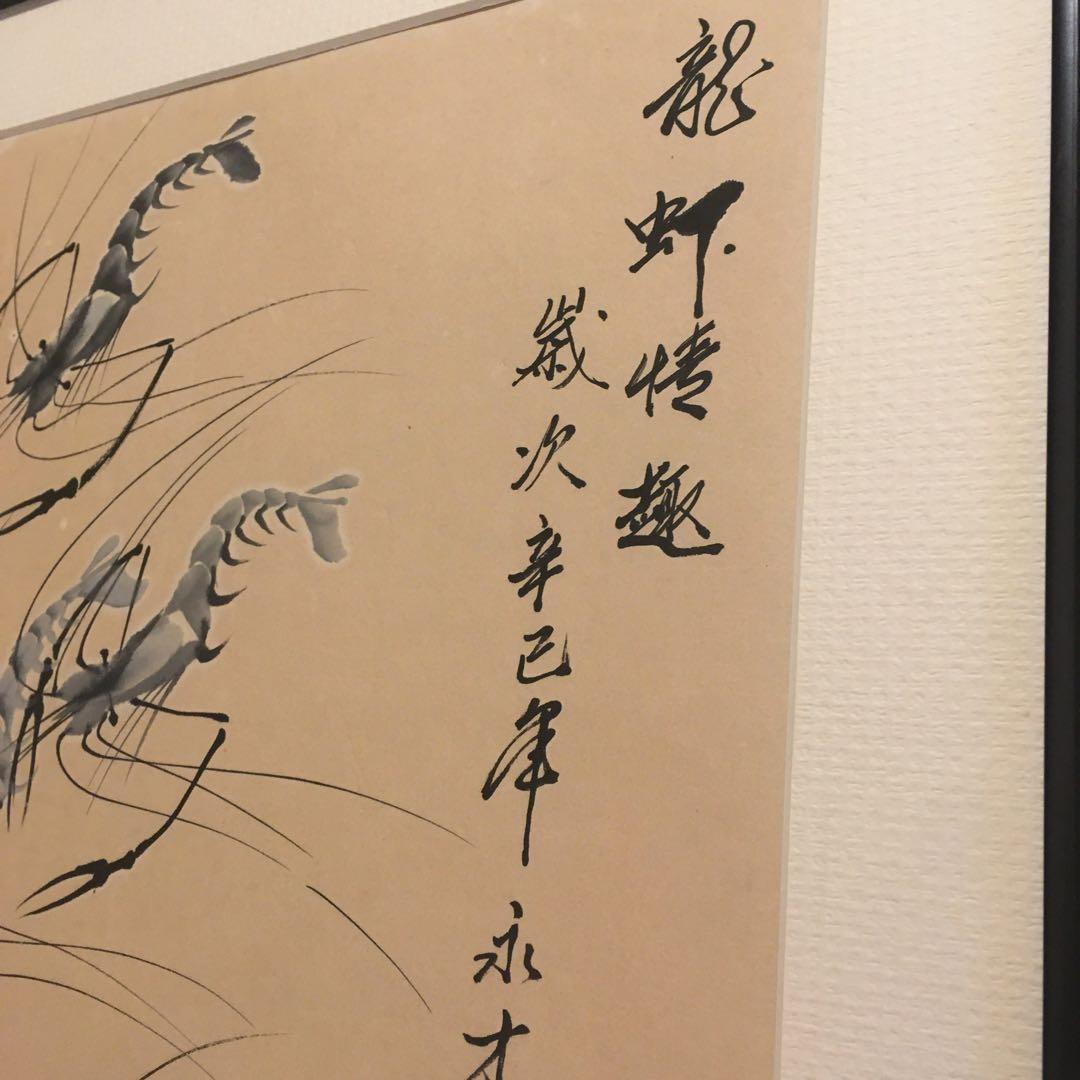 龍虾情趣
歲次辛巳年永才